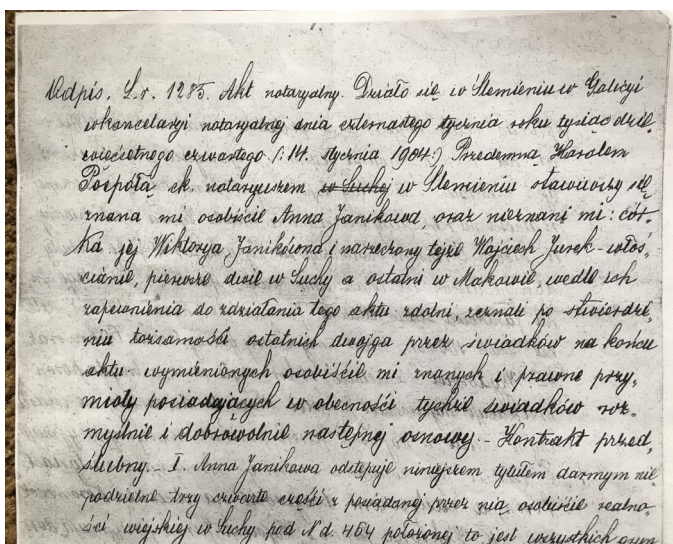 Odpis. L.r. 1285. Akt notaryalny. Działo się w Ślemieniu w Galicyi
w kancelaryi notaryalnej dnia czternastego stycznia roku tysiąc dzie„
więćsetnego czwartego /:14. stycznia 1904:/ Przedemną Karolem
Pospołą ck. notaryuszem w Suchej w Ślemieniu stawiwszy się
znana mi osobiście Anna Janikowa, oraz nieznani mi: cór„
ka jej Wiktorya Janikówna i narzeczony tejże Wojciech Jurek - włoś„
cianie, pierwsze dwie w Suchy a ostatni w Makowie, wedle ich
zapewnienia do zdziałania tego aktu zdolni, zeznali po stwierdze„
niu tożsamości ostatnich dwojga przez świadków na końcu
aktu wymienionych osobiście mi znanych i prawne przy„
mioty posiadających w obecności tychże świadków roz„
myślnie i dobrowolnie następnej osnowy - Kontrakt przed„
ślubny. - I. Anna Janikowa odstępuje niniejszem tytułem darmym nie
podzielne trzy czwarte części z posiadanej przez nią osobiście realno„
ści wiejskiej w Suchy pod Nd. 464 położonej to jest wszystkich